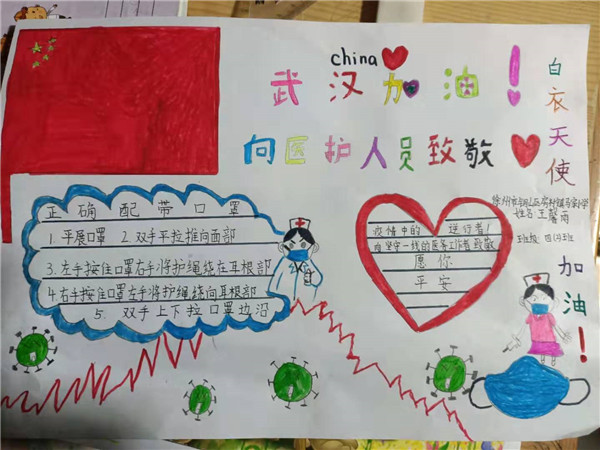 china
武汉加油！
向医护人员致敬
白衣天使
正确配带口罩
1.平展口罩 2.双手平拉推向面部
3.左手按住口罩右手将护绳绕在耳根部
4.右手按住口罩左手将护绳绕向耳根部
5.双手上下拉口罩边沿
疫情中的逆行者！
向坚守一线的医务工作者致敬
愿你
平安
徐州市铜山区
姓名 王馨雨
班级 四(4)班
加油！